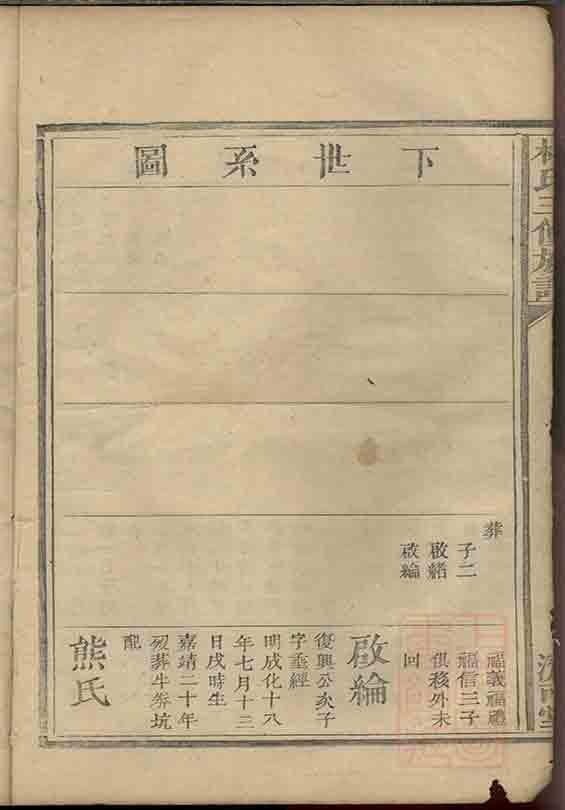 下世系圖
葬
子二
啟緒
啟綸
福義福禮
福信三子
俱移外未
回
啟綸
復興公次子
字垂經
明成化十八
年七月十三
日戌時生
嘉靖二十年
歿葬牛券坑
配
熊氏
林氏三修族譜